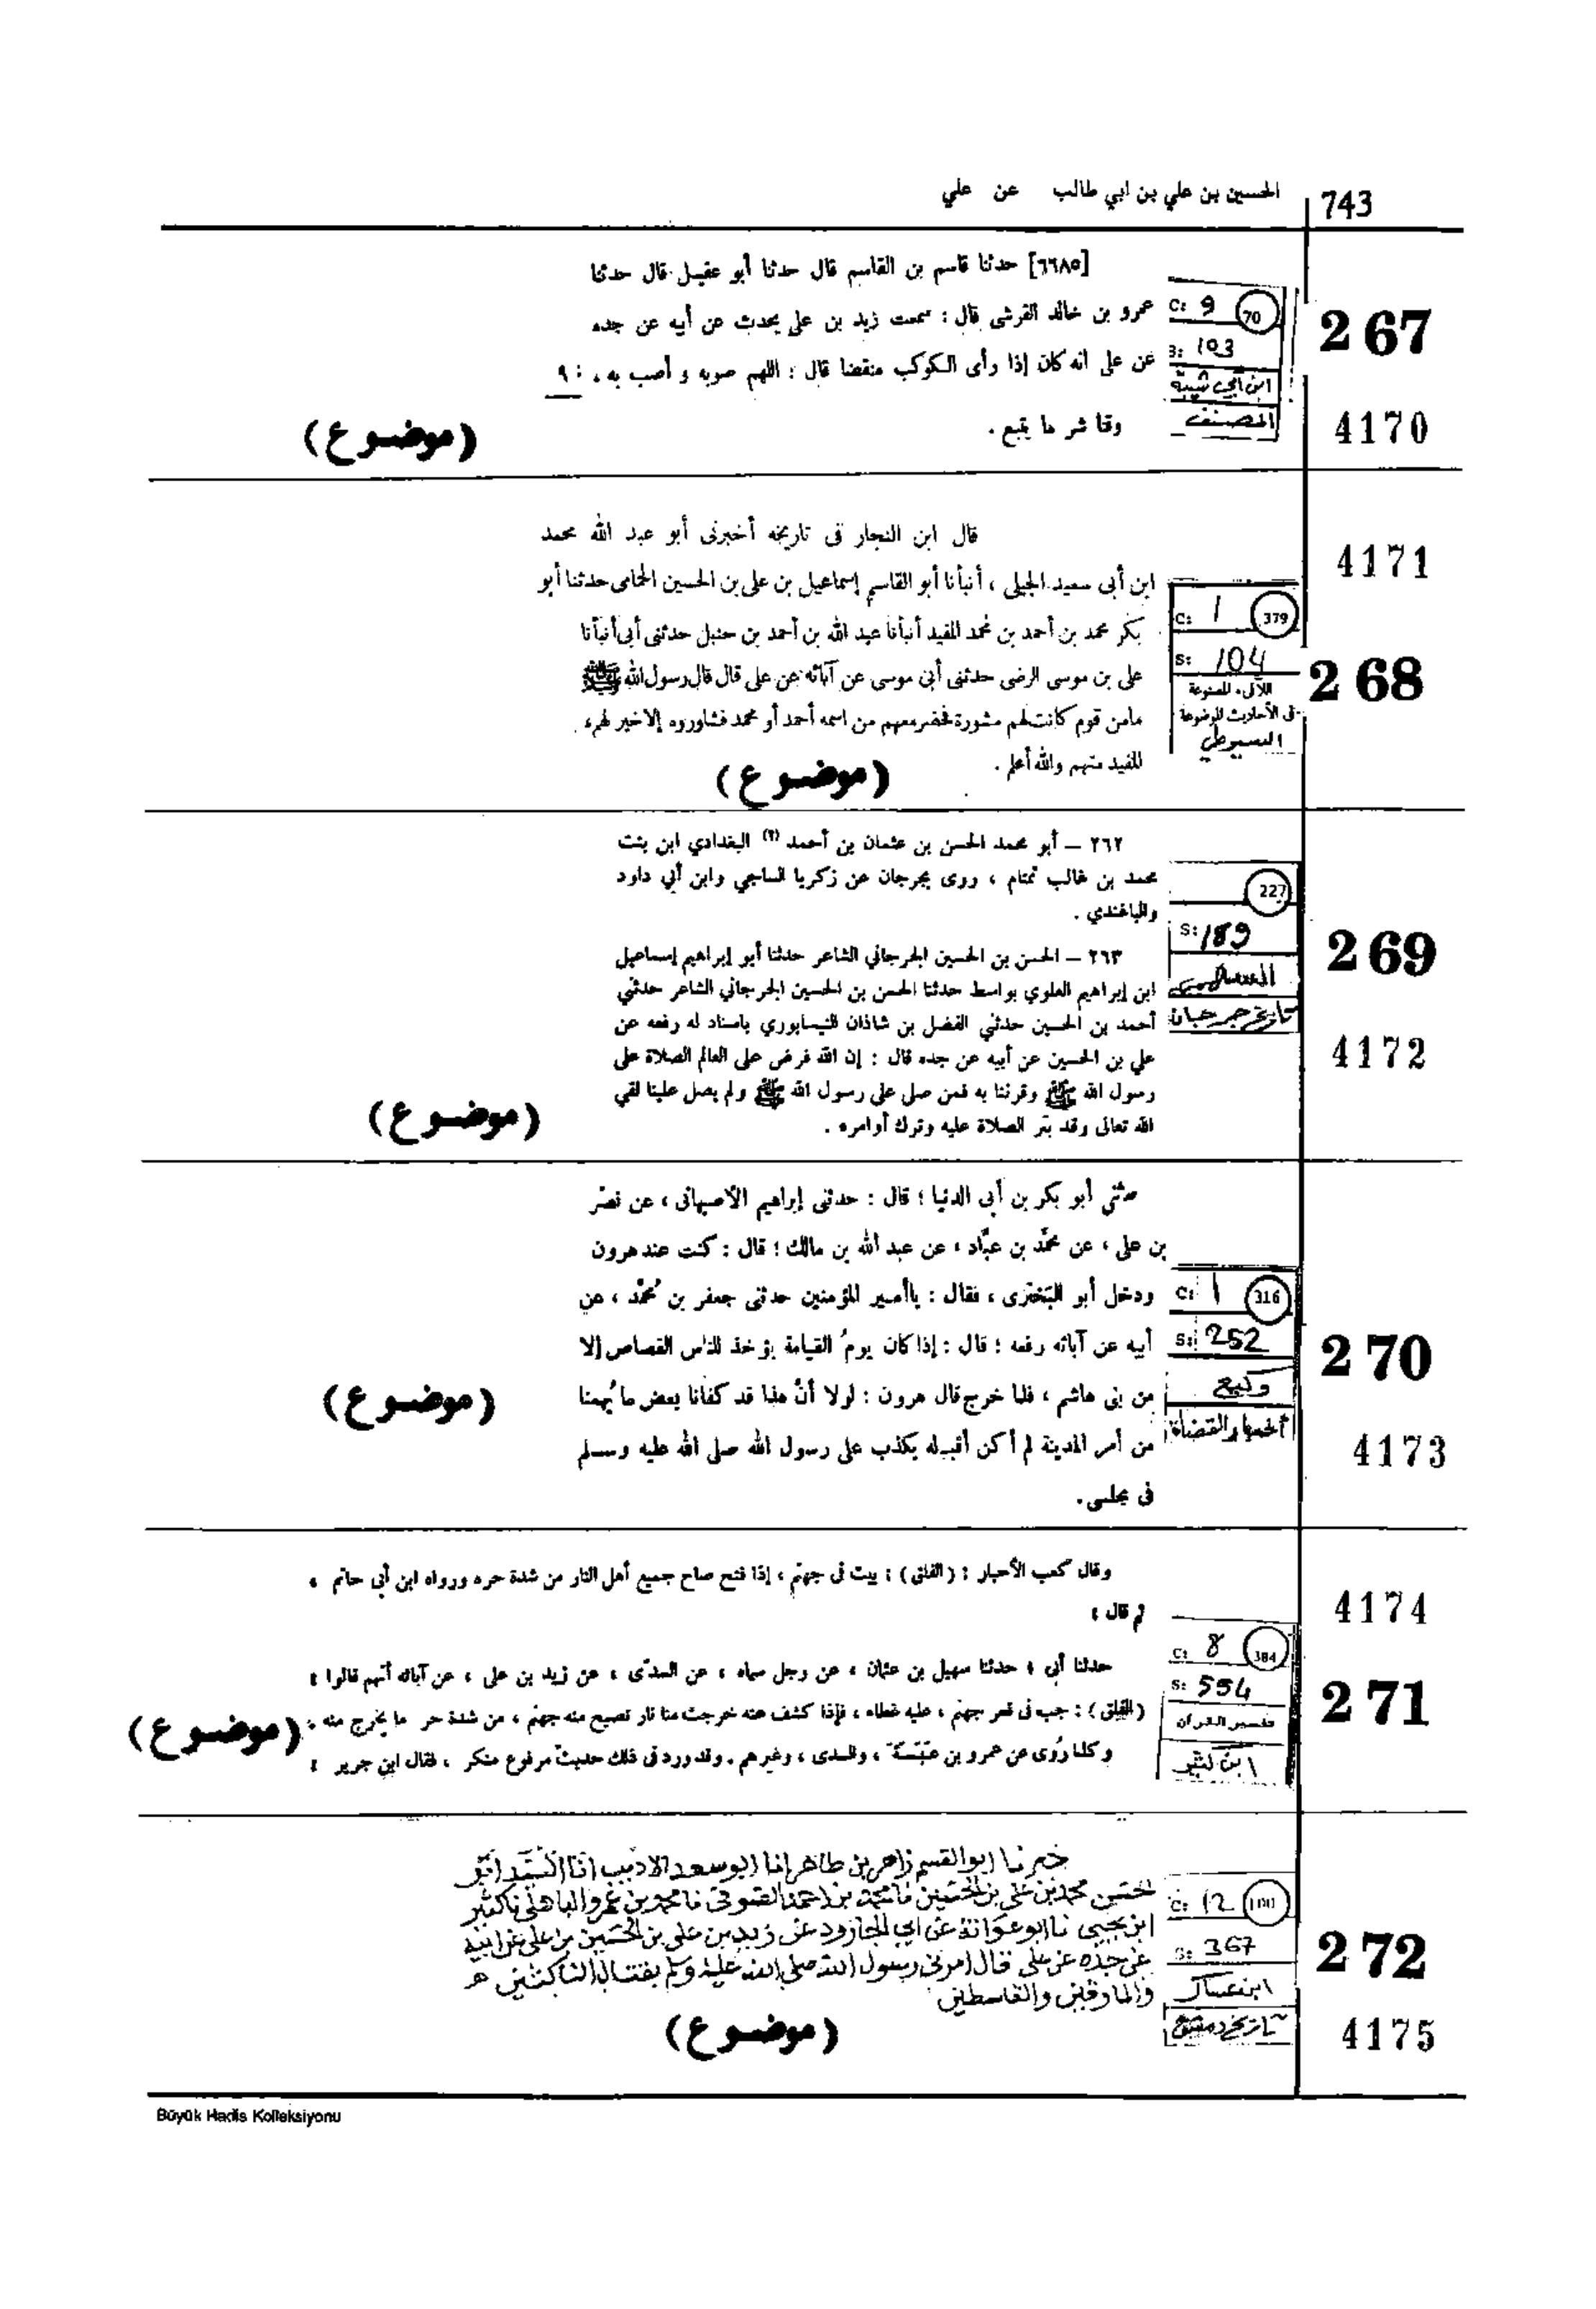 743
الحسين بن علي بن ابي طالب عن علي
[٦٦٨٥] حدثنا قاسم بن القاسم قال حدثنا أبو عقيل قال حدثنا
عمرو بن خالد القرشى قال : سمعت زيد بن على يحدث عن أبيه عن جده
عن على انه كان إذا رأى الكوكب منقضا قال : اللهم صوبه و أصب به ،
وقنا شر ما يتبع .
(موضوع)
C: 9 70
S: 103
ابن ابي شيبة
المصنف
267
4170
قال ابن النجار فى تاريخه أخبرنى أبو عبد الله محمد
ابن أبى سعيد الجيلى ، أنبأنا أبو القاسم إسماعيل بن على بن الحسين الحمامى حدثنا أبو
بكر محمد بن أحمد بن محمد المفيد أنبأنا عبد الله بن أحمد بن حنبل حدثنى أبى أنبأنا
على بن موسى الرضى حدثنى أبى موسى عن آبائه عن على قال قال رسول الله ﷺ
مامن قوم كانت لهم مشورة فحضر معهم من اسمه أحمد أو محمد فشاوروه إلا خير لهم ،
المفيد متهم والله أعلم .
(موضوع)
4171
C: 1 379
S: 104
اللآلىء المصنوعة
فى الأحاديث الموضوعة
السيوطي
268
٢٦٢ – أبو محمد الحسن بن عثمان بن أحمد (٢) البغدادي ابن بنت
محمد بن غالب تمتام ، روى بجرجان عن زكريا الساجي وابن أبي داود
والباغندي .
٢٦٣ – الحسن بن الحسين الجرجاني الشاعر حدثنا أبو إبراهيم إسماعيل
ابن إبراهيم العلوي بواسط حدثنا الحسن بن الحسين الجرجاني الشاعر حدثني
أحمد بن الحسين حدثني الفضل بن شاذان النيسابوري باسناد له رفعه عن
علي بن الحسين عن أبيه عن جده قال : إن الله فرض على العالم الصلاة على
رسول الله ﷺ وقرننا به فمن صلى على رسول الله ﷺ ولم يصل علينا لقي
الله تعالى وقد بتر الصلاة عليه وترك أوامره .
(موضوع)
227
S: 189
السهمي
تاريخ جرجان
269
4172
حدثني أبو بكر بن أبى الدنيا ؛ قال : حدثنى إبراهيم الأصبهانى ، عن نصر
بن على ، عن محمد بن عبّاد ، عن عبد الله بن مالك ؛ قال : كنت عند هرون
ودخل أبو البَخترى ، فقال : ياأمير المؤمنين حدثنى جعفر بن مُحمَّد ، عن
أبيه عن آبائه رفعه ؛ قال : إذا كان يومُ القيامة يؤخذ للناس القصاص إلا
من بنى هاشم ، فلما خرج قال هرون : لولا أنَّ هذا قد كفانا بعض ما يُهمنا
من أمر المدينة لم أكن أقبله يكذب على رسول الله صلى الله عليه وسلم
فى مجلسى .
(موضوع)
C: 1 316
S: 252
وكيع
اخبار القضاة
270
4173
وقال كعب الأحبار : (الفلق) : بيت فى جهنم ، إذا فتح صاح جميع أهل النار من شدة حره ورواه ابن أبى حاتم ،
ثم قال :
حدثنا أبى ، حدثنا سهيل بن عثمان ، عن رجل سماه ، عن السدّى ، عن زيد بن على ، عن آبائه أنهم قالوا :
(الفلق) : جب فى قعر جهنم ، عليه غطاء ، فإذا كشف عنه خرجت منه نار تصيح منه جهنم ، من شدة حر ما يخرج منه .
وكذا رُوى عن عمرو بن عَبَسَة ، والسدى ، وغيرهم . وقد ورد فى ذلك حديث مرفوع منكر ، فقال ابن جرير :
(موضوع)
4174
C: 8 384
S: 554
تفسير القرآن
ابن كثير
271
خبرنا ابو القسم زاهر بن طاهر انا ابو سعد الاديب انا السيد ابو
الحسن محمد بن علي بن الحسين نا محمد بن احمد الصوفى نا محمد بن عمرو الباهلى نا كثير
ابن يحيى نا ابو عوانة عن ابي الجارود عن زيد بن علي بن الحسين بن على عن ابيه
عن جده عن على قال امرنى رسول الله صلى الله عليه وسلم بقتال الناكثين
والمارقين والقاسطين
(موضوع)
C: 12
S: 367
ابن عساكر
تاريخ دمشق
272
4175
Büyük Hadis Kolleksiyonu